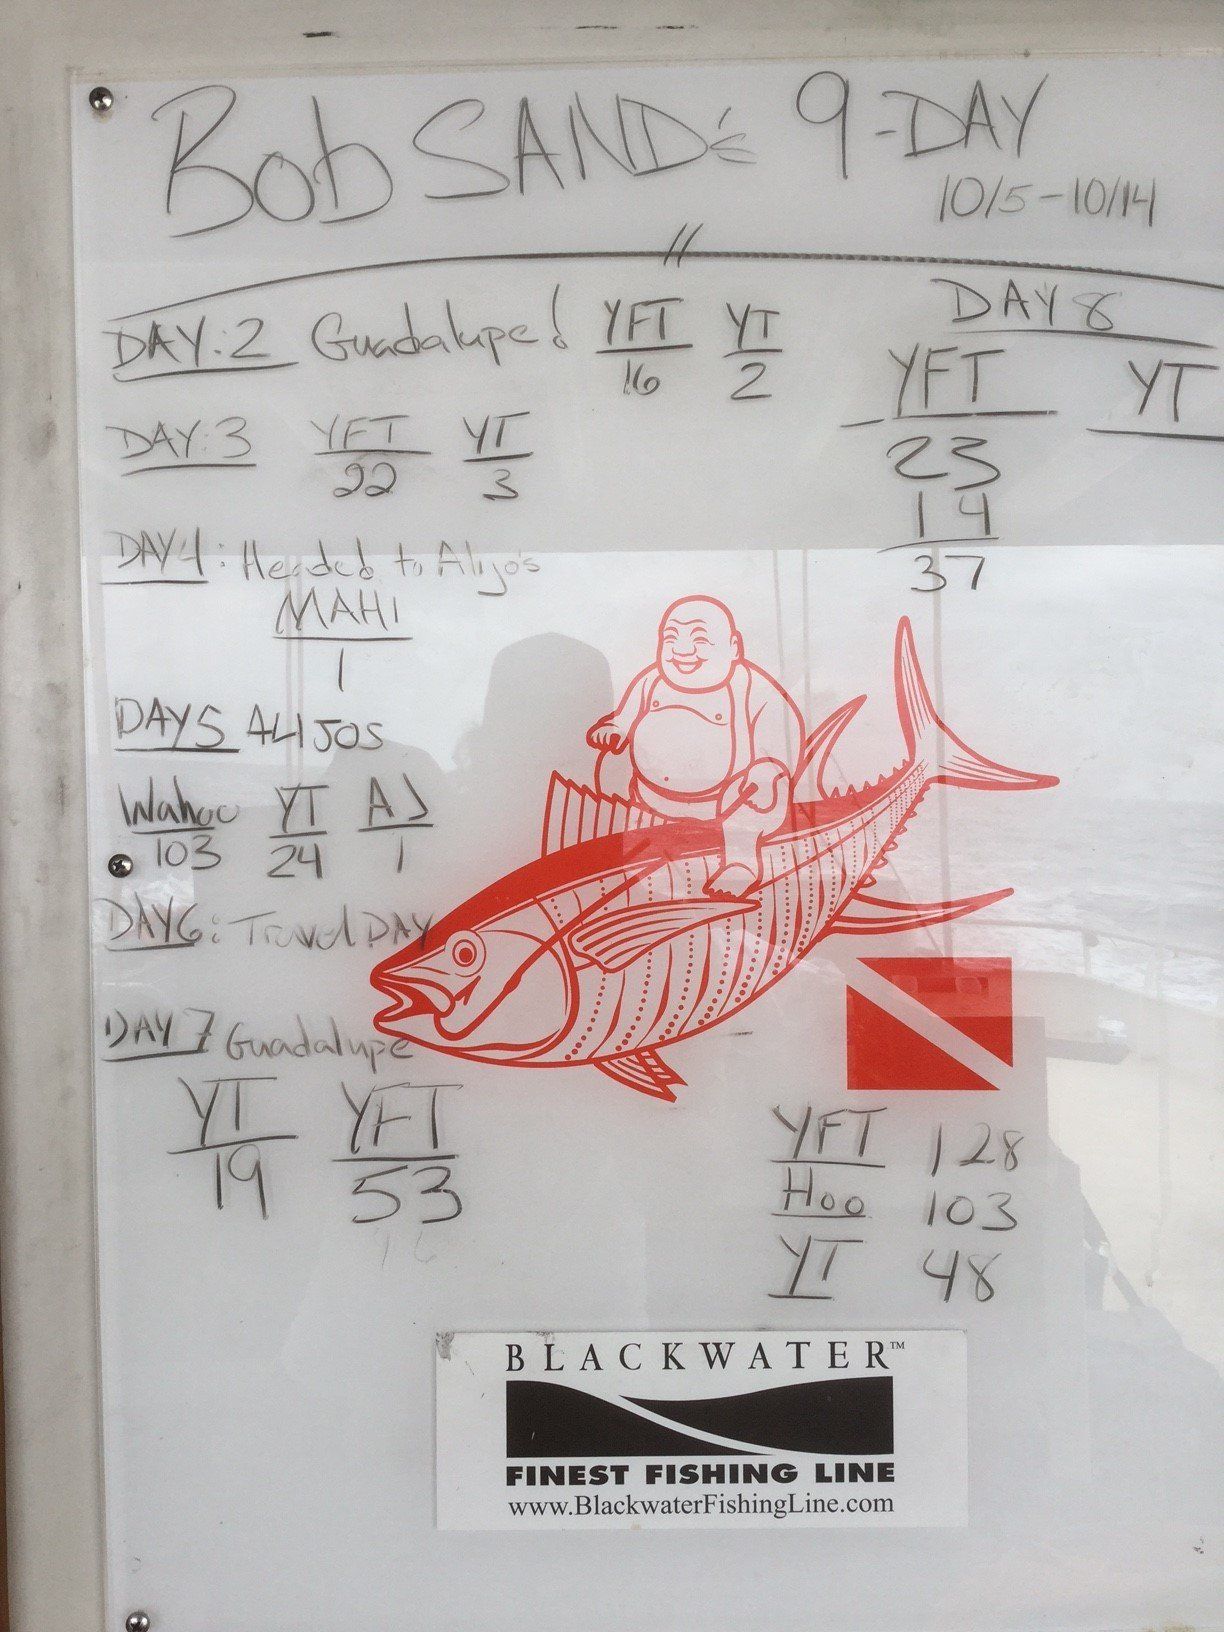 Bob SAND's 9-DAY
10/5-10/14
DAY:2 Guadalupe! YFT YT
16 2
DAY:3 YFT YT
22 3
DAY4: Headed to Alijo's
MAHI
1
DAY5 ALIJOS
Wahoo YT AJ
103 24 1
DAY6: Travel DAY
DAY 7 Guadalupe
YT YFT
19 53
DAY 8
YFT YT
23
14
37
YFT 128
Hoo 103
YT 48
BLACKWATER™
FINEST FISHING LINE
www.BlackwaterFishingLine.com